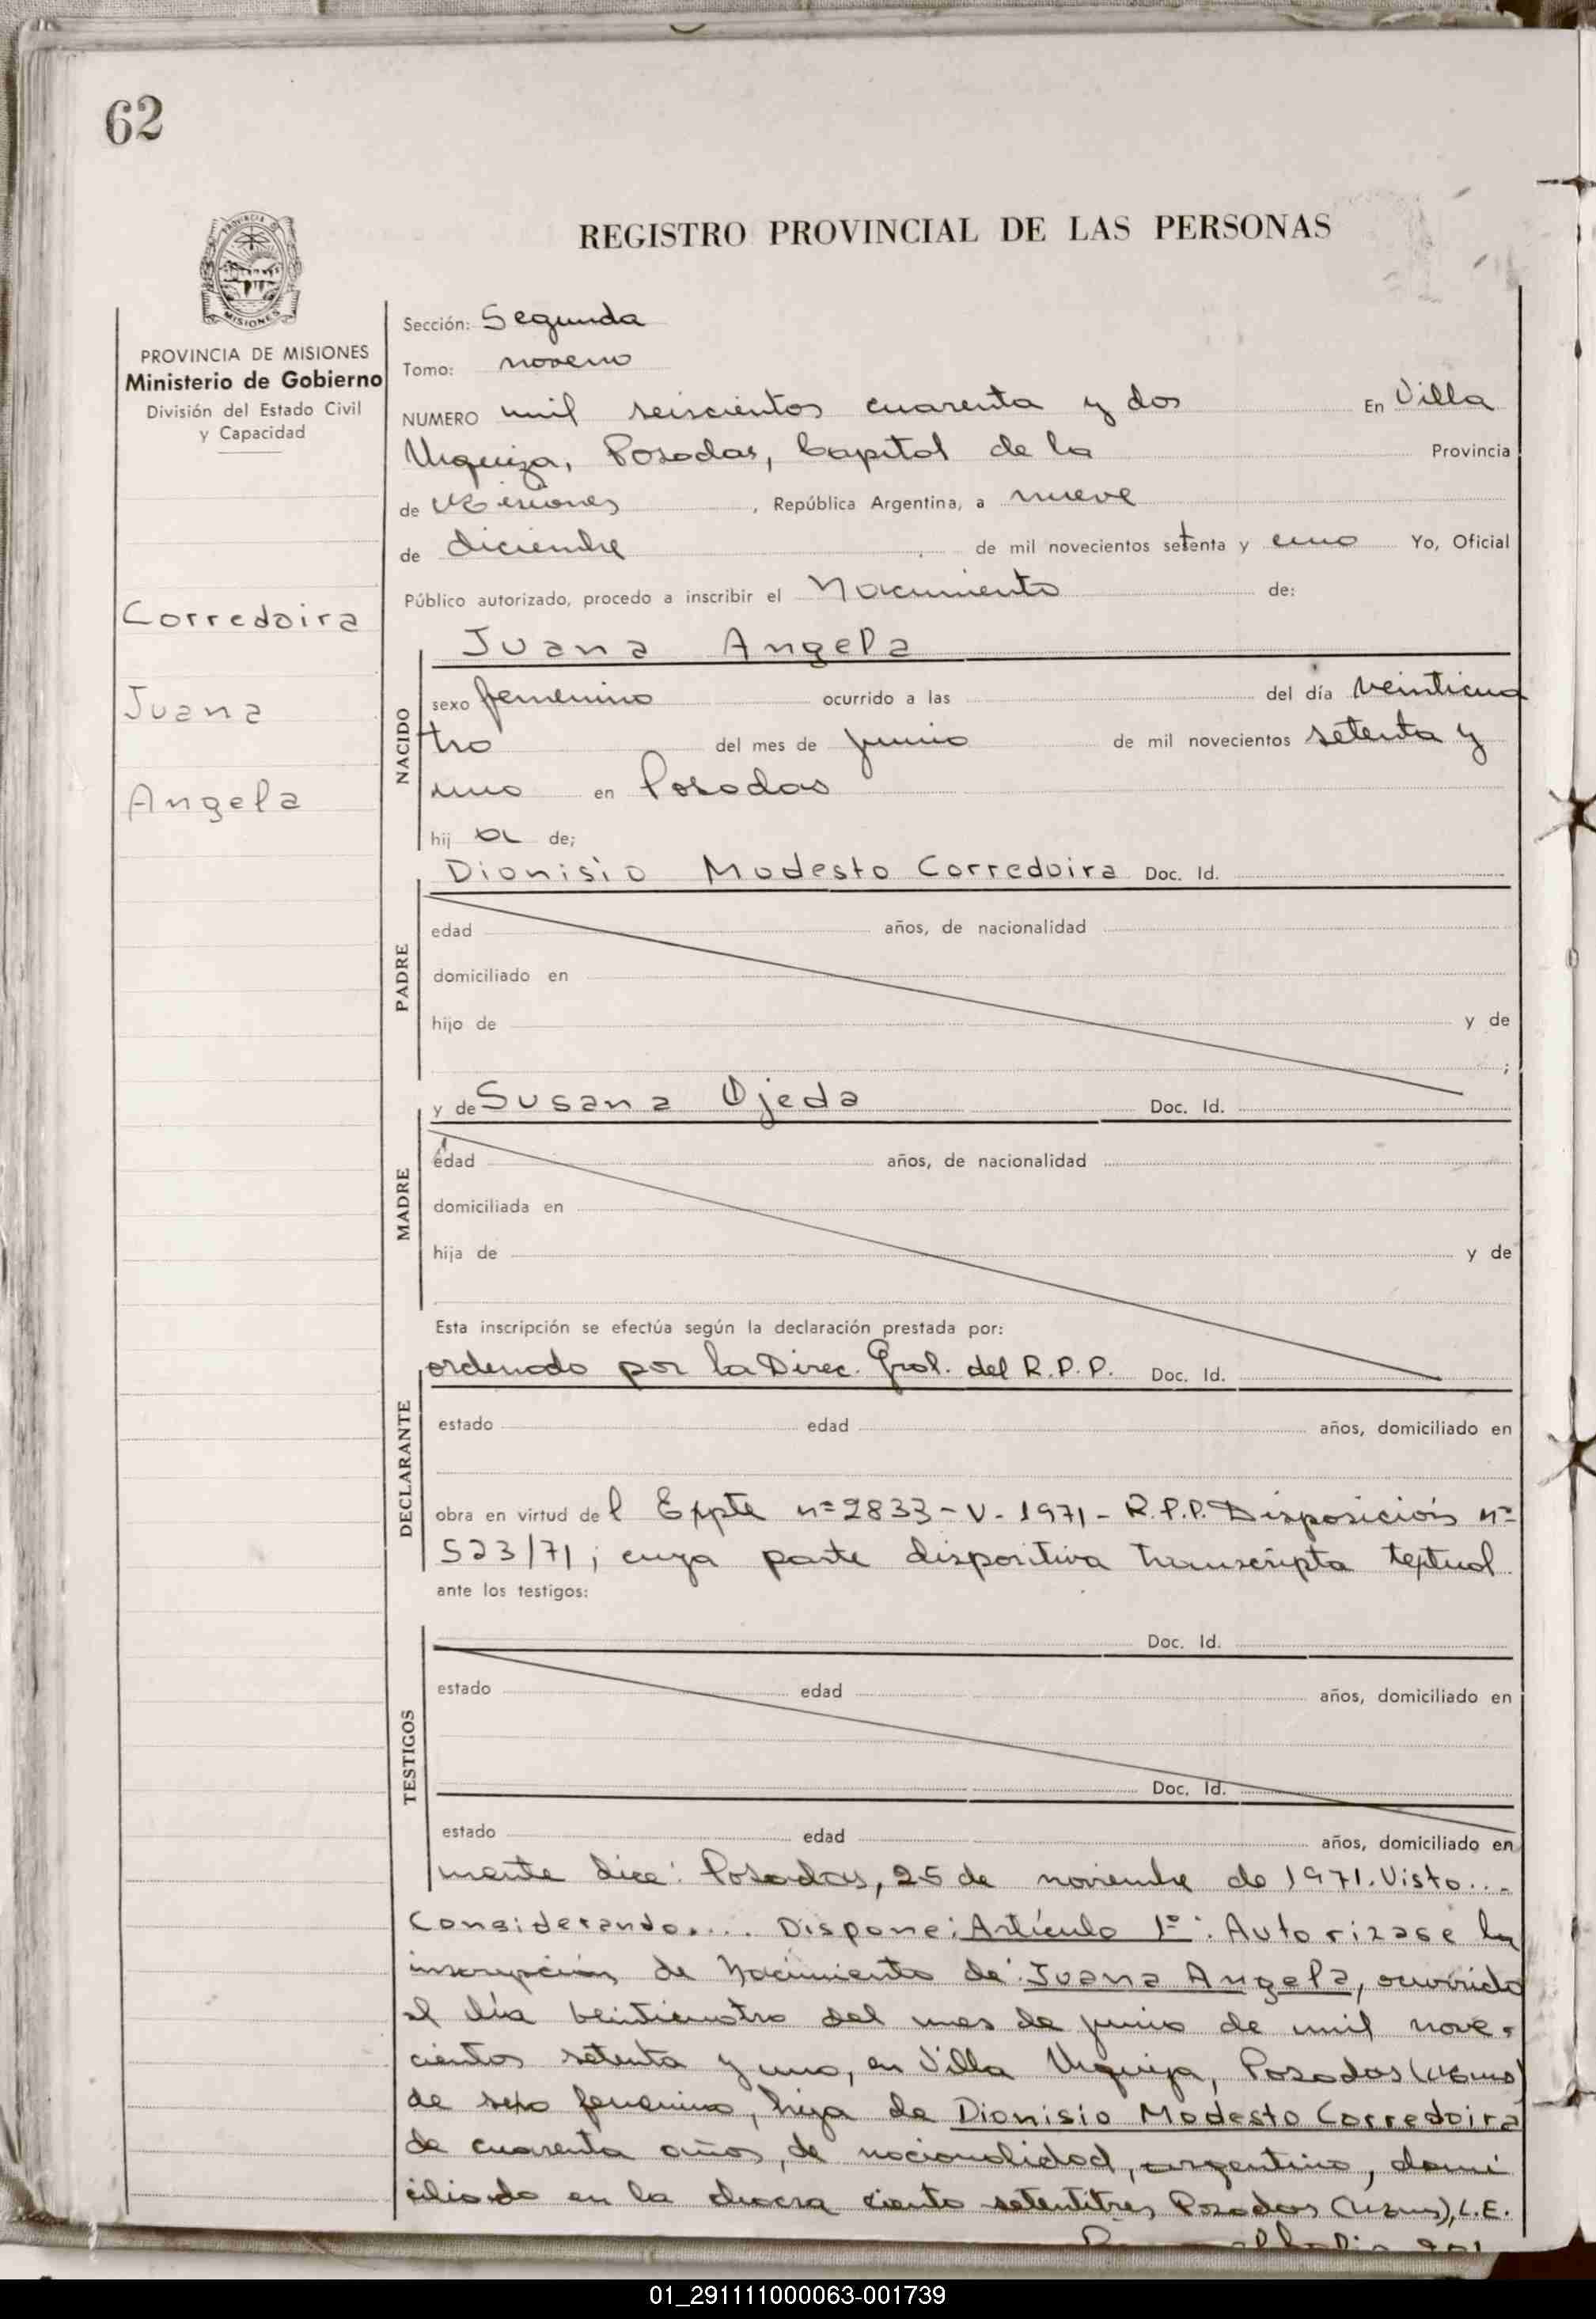 62
REGISTRO PROVINCIAL DE LAS PERSONAS
PROVINCIA
MISIONES
PROVINCIA DE MISIONES
Ministerio de Gobierno
División del Estado Civil
y Capacidad
Corredoira
Juana
Angela
Sección: Segunda
Tomo: noveno
NUMERO mil seiscientos cuarenta y dos En Villa
Urquiza, Posadas, Capital de la Provincia
de Misiones, República Argentina, a nueve
de diciembre de mil novecientos setenta y uno Yo, Oficial
Público autorizado, procedo a inscribir el Nacimiento de:
Juana Angela
NACIDO
sexo femenino ocurrido a las del día veinticua
tro del mes de junio de mil novecientos setenta y
uno en Posadas
hij a de;
Dionisio Modesto Corredoira Doc. Id.
PADRE
edad años, de nacionalidad
domiciliado en
hijo de y de
;
y de Susana Ojeda Doc. Id.
MADRE
edad años, de nacionalidad
domiciliada en
hija de y de
Esta inscripción se efectúa según la declaración prestada por:
ordenado por la Direc. Gral. del R.P.P. Doc. Id.
DECLARANTE
estado edad años, domiciliado en
obra en virtud del Expte nº 2833-V-1971-R.P.P. Disposición nº
523/71; cuya parte dispositiva transcripta textual
ante los testigos:
Doc. Id.
TESTIGOS
estado edad años, domiciliado en
Doc. Id.
estado edad años, domiciliado en
mente dice: Posadas, 25 de noviembre de 1971. Visto...
Considerando.... Dispone: Artículo 1º: Autorizase la
inscripción de Nacimiento de: Juana Angela, ocurrido
el día veinticuatro del mes de junio de mil nove-
cientos setenta y uno, en Villa Urquiza, Posadas
de sexo femenino, hija de Dionisio Modesto Corredoira
de cuarenta años, de nacionalidad, argentino, domi
ciliado en la chacra ciento setentitres Posadas L.E.
01_291111000063-001739